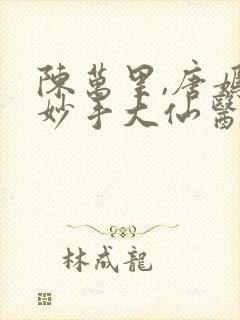 陳萬里,唐嫣
妙手大仙醫
林成龍